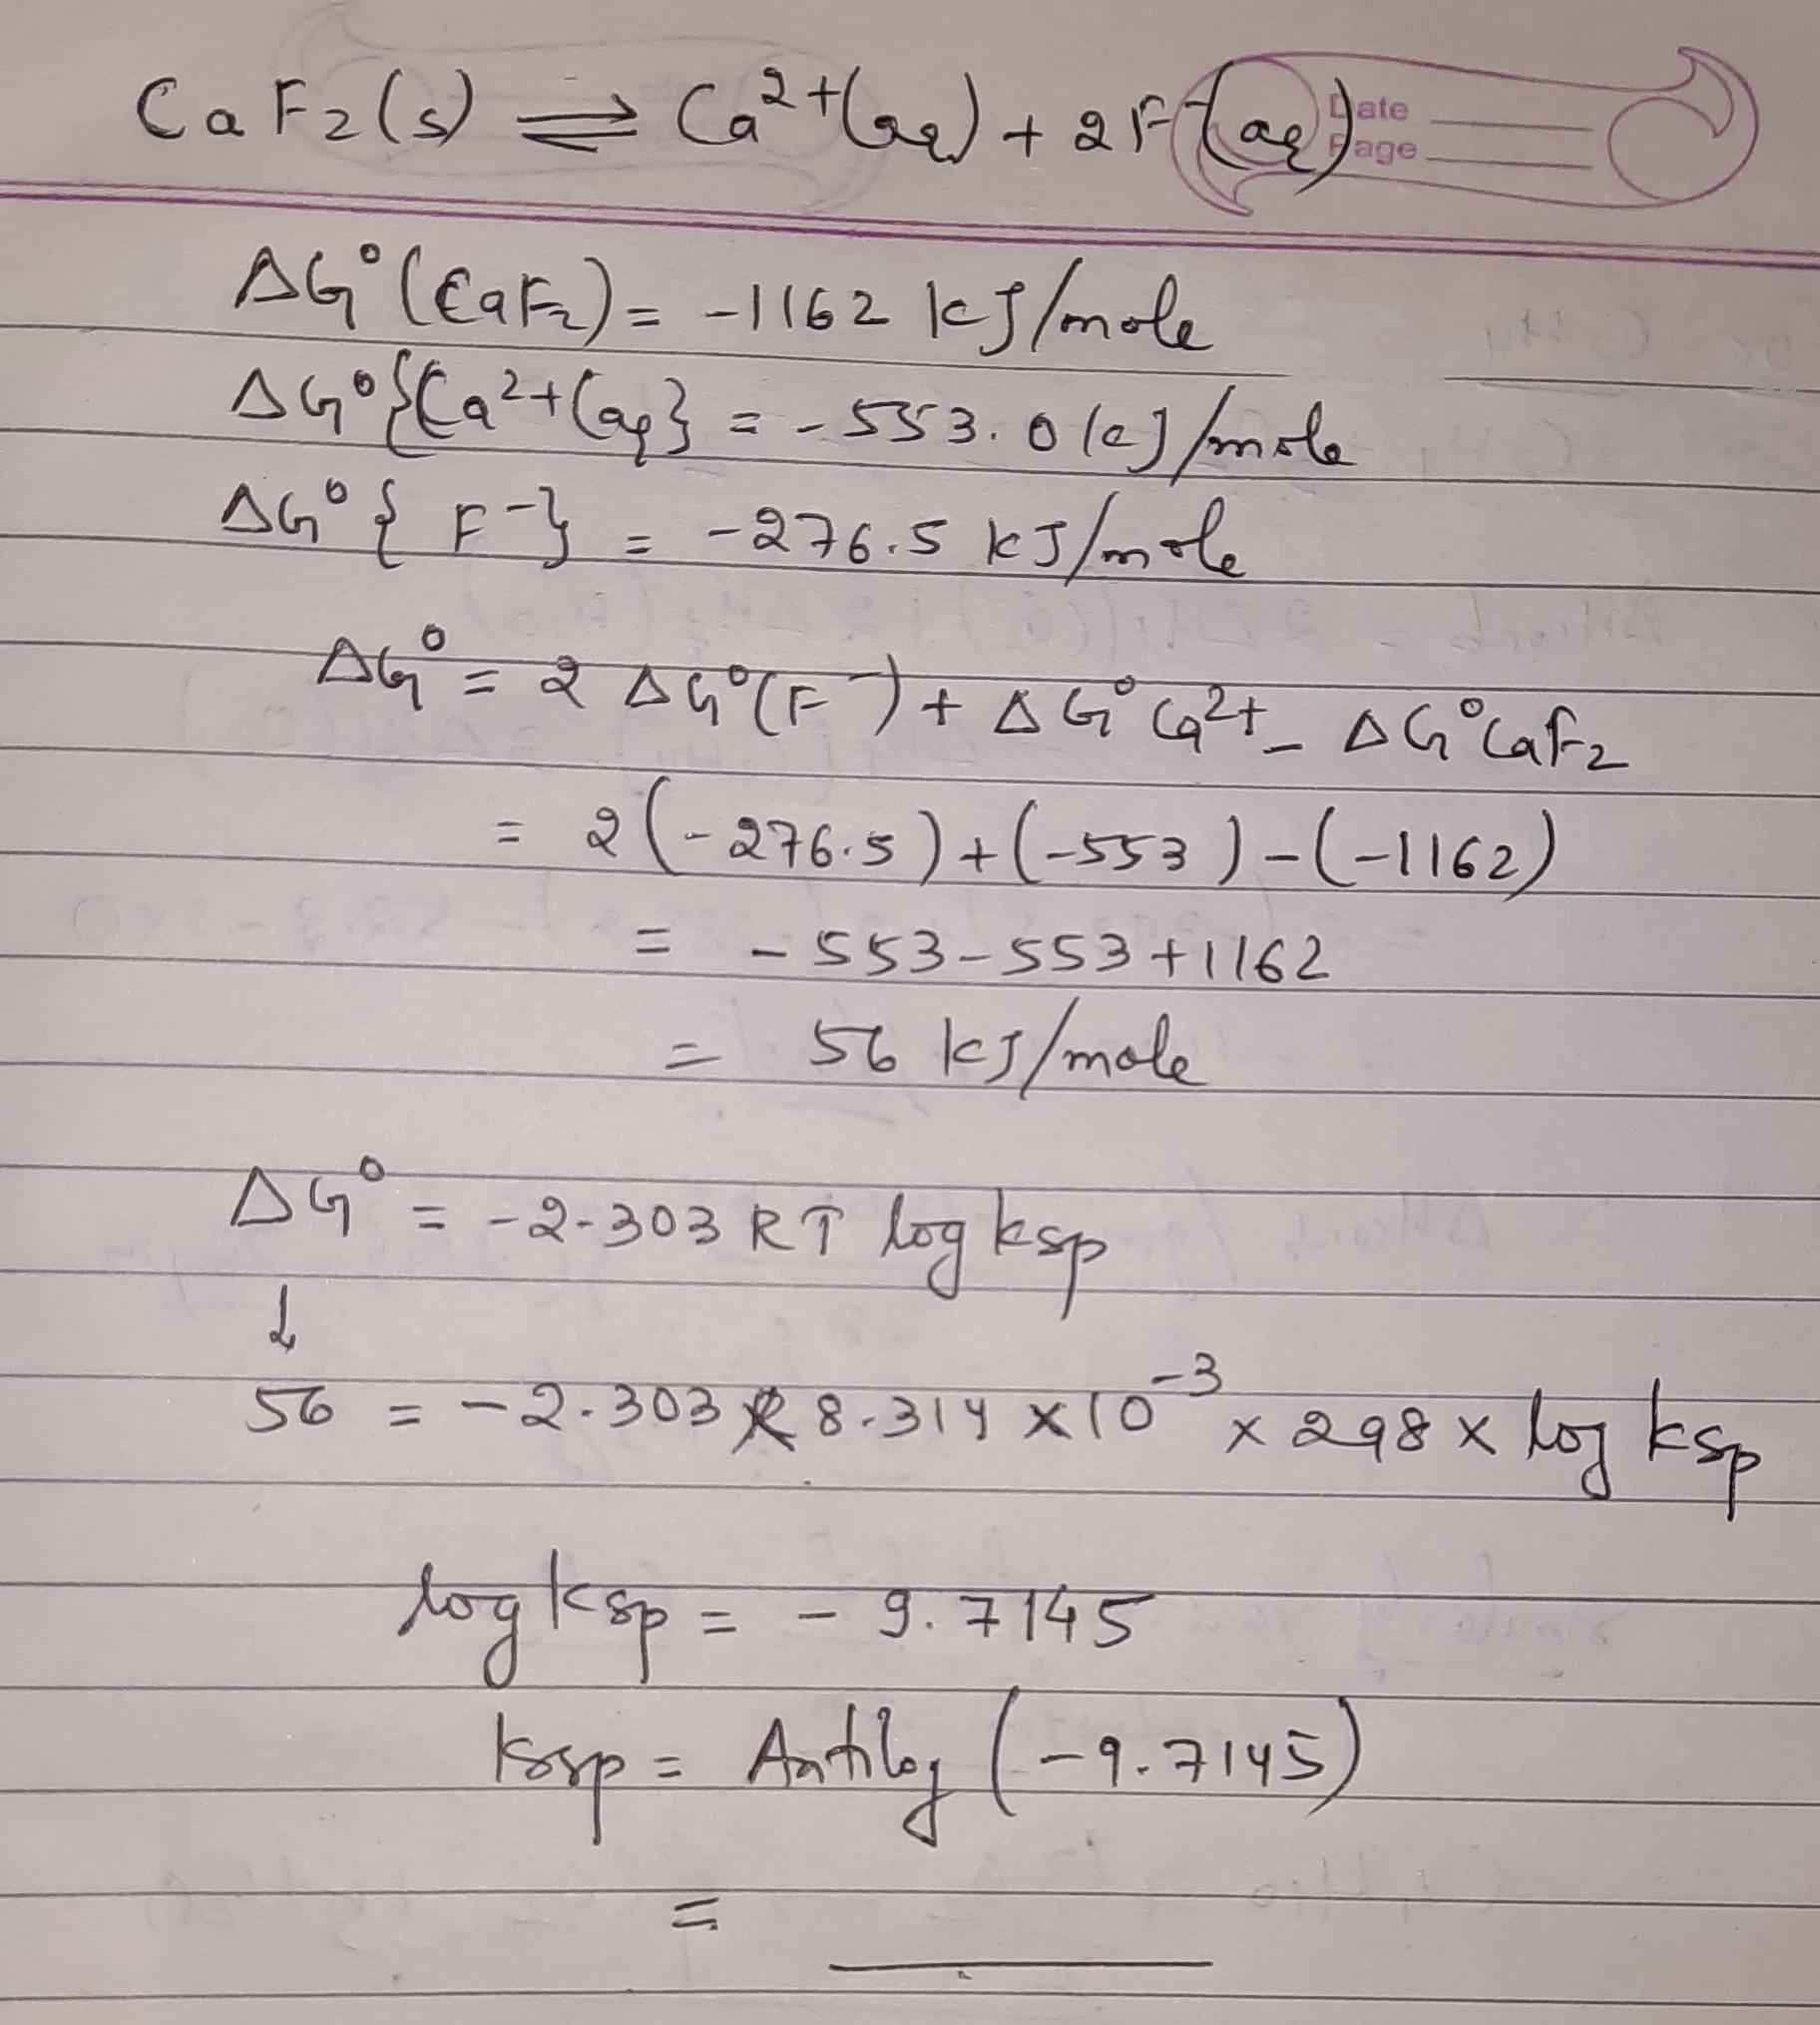 Date
Page
CaF₂(s) ⇌ Ca²⁺(aq) + 2F⁻(aq)
ΔG°(CaF₂) = -1162 kJ/mole
ΔG°{Ca²⁺(aq} = -553.0 kJ/mole
ΔG°{F⁻} = -276.5 kJ/mole
ΔG° = 2 ΔG°(F⁻) + ΔG° Ca²⁺ - ΔG° CaF₂
= 2(-276.5) + (-553) - (-1162)
= -553 - 553 + 1162
= 56 kJ/mole
ΔG° = -2.303 RT log ksp
↓
56 = -2.303 × 8.314 × 10⁻³ × 298 × log ksp
log ksp = -9.7145
ksp = Antilog (-9.7145)
=